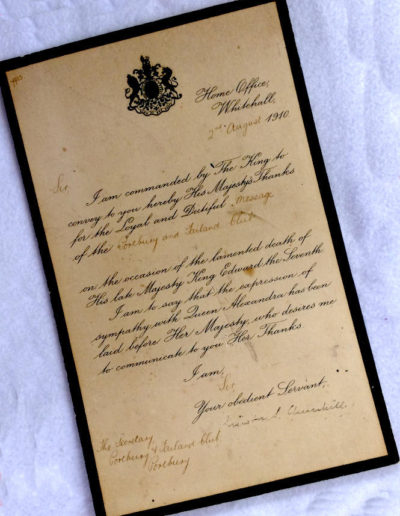 Home Office,
Whitehall,
2nd August 1910.
Sir,
I am commanded by The King to
convey to you hereby His Majesty's Thanks
for the Loyal and Dutiful Message
of the Portbury and Failand Club
on the occasion of the lamented death of
His late Majesty King Edward the Seventh
I am to say that the expression of
sympathy with Queen Alexandra has been
laid before Her Majesty, who desires me
to communicate to you Her Thanks.
I am,
Sir,
Your obedient Servant,
Winston S. Churchill
The Secretary
Portbury & Failand Club
Portbury